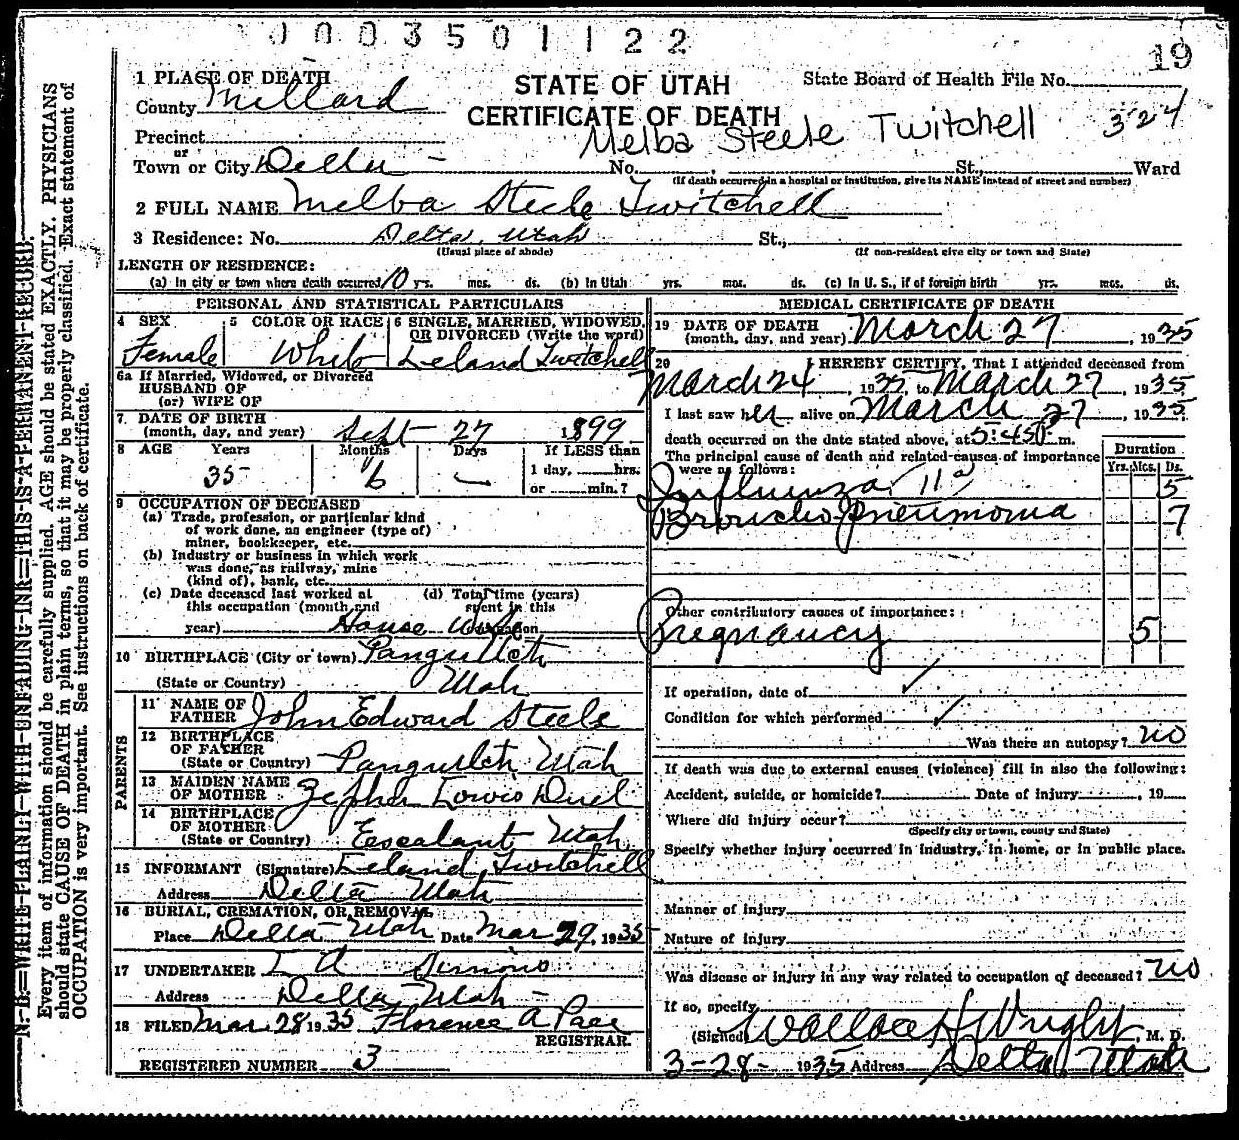 0003501122
19
1 PLACE OF DEATH
County Millard
STATE OF UTAH
CERTIFICATE OF DEATH
State Board of Health File No.
Melba Steele Twitchell 324
Precinct
or
Town or City Delta No. St., Ward
(If death occurred in a hospital or institution, give its NAME instead of street and number)
2 FULL NAME Melba Steele Twitchell
3 Residence: No. Delta, Utah St.,
(Usual place of abode) (If non-resident give city or town and State)
LENGTH OF RESIDENCE:
(a) In city or town where death occurred 10 yrs. mos. ds. (b) In Utah yrs. mos. ds. (c) In U. S., if of foreign birth yrs. mos. ds.
PERSONAL AND STATISTICAL PARTICULARS
4 SEX 5 COLOR OR RACE 6 SINGLE, MARRIED, WIDOWED, OR DIVORCED (Write the word)
Female White Leland Twitchell
6a If Married, Widowed, or Divorced
HUSBAND OF
(or) WIFE OF
7 DATE OF BIRTH
(month, day, and year) Sept 27 1899
8 AGE Years Months Days If LESS than
35 6 1 day, hrs.
or min.?
9 OCCUPATION OF DECEASED
(a) Trade, profession, or particular kind
of work done, as engineer (type of)
miner, bookkeeper, etc.
(b) Industry or business in which work
was done, as railway, mine
(kind of), bank, etc.
(c) Date deceased last worked at (d) Total time (years)
this occupation (month and spent in this
year) House wife
10 BIRTHPLACE (City or town) Panguitch
(State or Country) Utah
PARENTS
11 NAME OF
FATHER John Edward Steele
12 BIRTHPLACE
OF FATHER
(State or Country) Panguitch Utah
13 MAIDEN NAME
OF MOTHER
14 BIRTHPLACE
OF MOTHER
(State or Country) Escalant Utah
15 INFORMANT (Signature) Leland Twitchell
Address Delta Utah
16 BURIAL, CREMATION, OR REMOVAL
Place Delta Utah Date Mar 29, 1935
17 UNDERTAKER
Address Delta Utah
18 FILED Mar. 28 1935 Florence A Pace
REGISTRAR.
REGISTERED NUMBER 3
MEDICAL CERTIFICATE OF DEATH
19 DATE OF DEATH
(month, day, and year) March 27, 1935
20 I HEREBY CERTIFY, That I attended deceased from
March 24, 1935 to March 27, 1935
I last saw her alive on March 27, 1935
death occurred on the date stated above, at 5:45 P m.
The principal cause of death and related causes of importance
were as follows:
Duration
Yrs. Mos. Ds.
Influenza 11a 5
Broncho-Pneumonia 7
Other contributory causes of importance:
Pregnancy 5
If operation, date of
Condition for which performed
Was there an autopsy? no
If death was due to external causes (violence) fill in also the following:
Accident, suicide, or homicide? Date of injury , 19
Where did injury occur?
(Specify city or town, county and State)
Specify whether injury occurred in industry, in home, or in public place.
Manner of injury
Nature of injury
Was disease or injury in any way related to occupation of deceased? no
If so, specify
(Signed) Wallace H Wright, M. D.
3-28- 1935 Address Delta, Utah
N. B.—WRITE PLAINLY WITH UNFADING INK—THIS IS A PERMANENT RECORD.
Every item of information should be carefully supplied. AGE should be stated EXACTLY. PHYSICIANS
should state CAUSE OF DEATH in plain terms, so that it may be properly classified. Exact statement of
OCCUPATION is very important. See instructions on back of certificate.